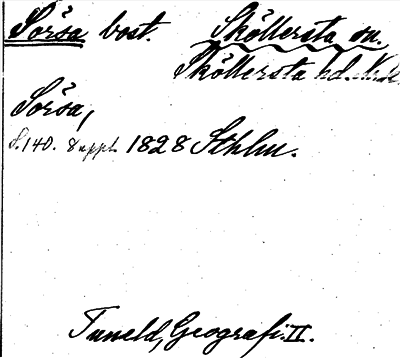 Sörsa bost. Sköllersta sn.
Sköllersta hd. Nrke
Sörsa,
S. 140. 8 uppl. 1828 Sthlm.
Tuneld, Geografi. II.